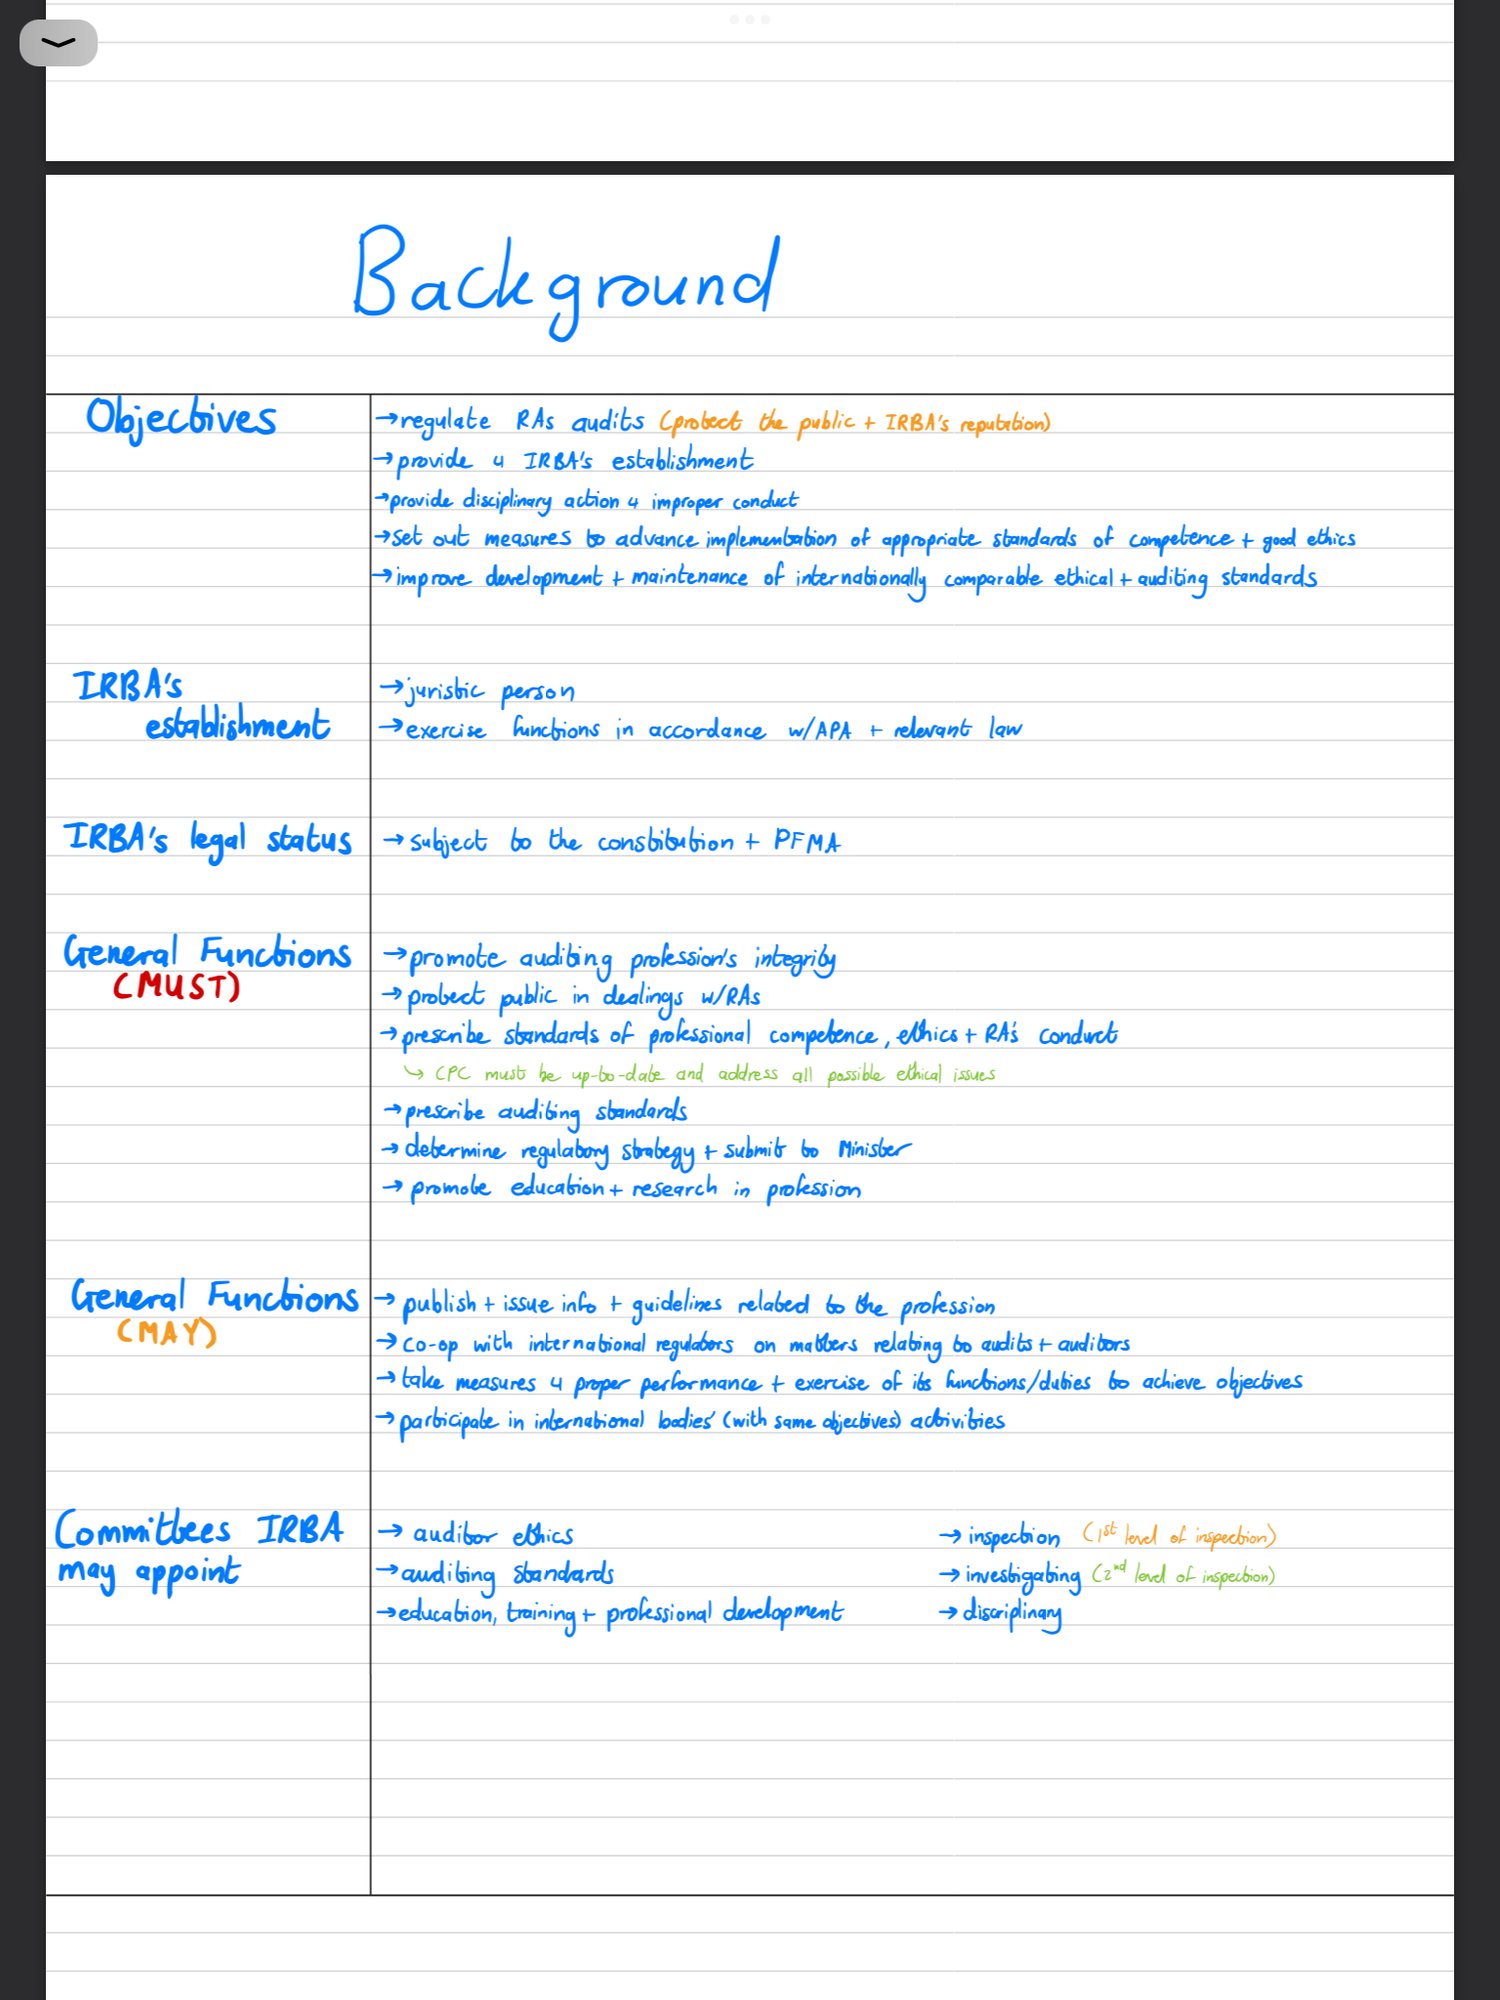 Background
Objectives
→ regulate RAs audits (protect the public + IRBA's reputation)
→ provide 4 IRBA's establishment
→ provide disciplinary action 4 improper conduct
→ set out measures to advance implementation of appropriate standards of competence + good ethics
→ improve development + maintenance of internationally comparable ethical + auditing standards
IRBA's
establishment
→ juristic person
→ exercise functions in accordance w/APA + relevant law
IRBA's legal status
→ subject to the constitution + PFMA
General Functions
(MUST)
→ promote auditing profession's integrity
→ protect public in dealings w/RAs
→ prescribe standards of professional competence, ethics + RA's conduct
↳ CPC must be up-to-date and address all possible ethical issues
→ prescribe auditing standards
→ determine regulatory strategy + submit to Minister
→ promote education + research in profession
General Functions
(MAY)
→ publish + issue info + guidelines related to the profession
→ co-op with international regulators on matters relating to audits + auditors
→ take measures 4 proper performance + exercise of its functions/duties to achieve objectives
→ participate in international bodies' (with same objectives) activities
Committees IRBA
may appoint
→ auditor ethics
→ auditing standards
→ education, training + professional development
→ inspection (1st level of inspection)
→ investigating (2nd level of inspection)
→ disciplinary